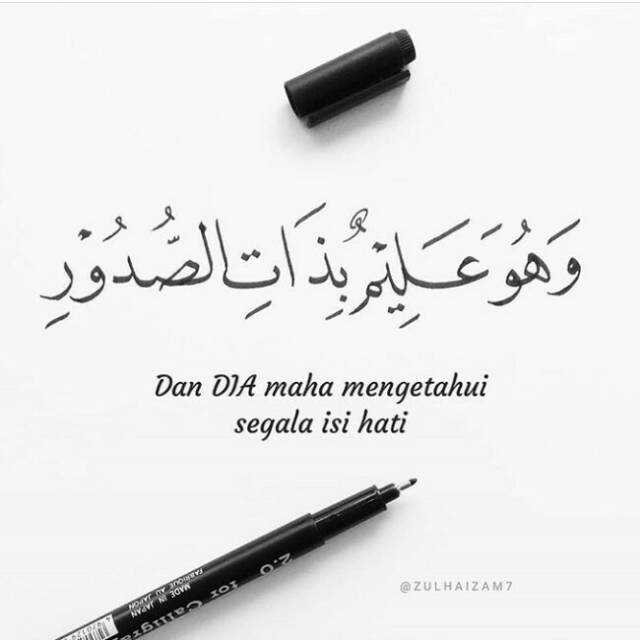 وَهُوَ عَلِيْمٌ بِذَاتِ الصُّدُوْرِ
Dan DIA maha mengetahui
segala isi hati
@ZULHAIZAM7
2.0 for Calligra
MADE IN JAPAN
FABRIQUE AU JAPON